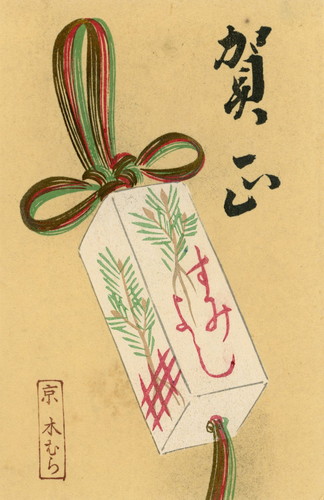 賀正
すみ
よし
京 木むら